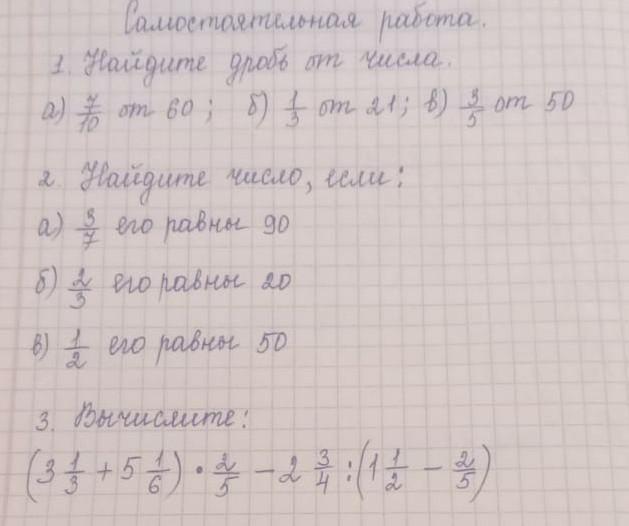 Самостоятельная работа.
1. Найдите дробь от числа.
а) 7/10 от 60; б) 1/3 от 21; в) 3/5 от 50
2. Найдите число, если:
а) 3/7 его равны 90
б) 2/3 его равны 20
в) 1/2 его равны 50
3. Вычислите:
(3 1/3 + 5 1/6) · 2/5 − 2 3/4 : (1 1/2 − 2/5)